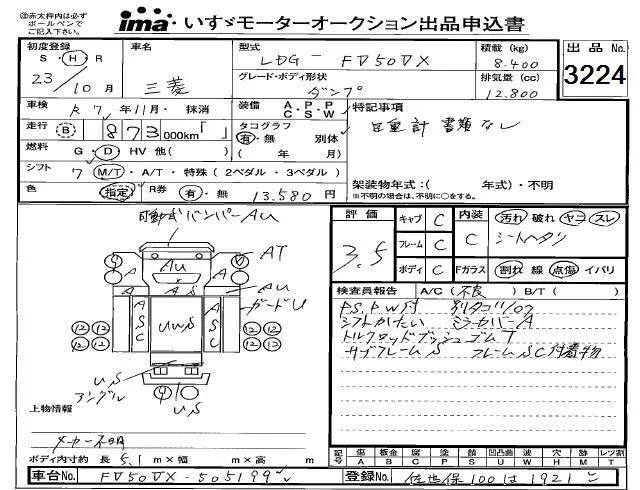 ㊟赤太枠内は必ず
ボールペンで
ご記入下さい。
ima・いすゞモーターオークション出品申込書
初度登録 車名 型式 LDG- FV50VX 積載 (kg) 8.400 出品No. 3224
S・H・R 三菱 グレード・ボディ形状 ダンプ 排気量 (cc) 12.800
23/10月
車検 R 7年11月・抹消 装備 A・P・P C・S・W 特記事項
走行 B 873000km「 」 タコグラフ 有・無 別体 自重計書類なし
燃料 G・D・HV 他( ) ( 年 月)
シフト 7 M/T・A/T・特殊(2ペダル・3ペダル) 架装物年式:( 年式)・不明
色 指定 R券 有・無 13.580円 ※不明の場合は、不明に○をする。
可動式バンパーAU
評価 3.5 キャブ C 内装 C 汚れ 破れ ヤニ スレ
フレーム C シートヘタリ
ボディ C Fガラス 割れ 線 点傷 イバリ
4 4 AT
A Au A
A A S AU
ガードU
A S C UWS A S C
12 12 12 12
12 12 12 12
US
アングル
4
US
検査員報告 A/C(不良) B/T( )
PS.PW付
シフトかたい ミラーカバーA
トルクロッドブッシュゴムT
サブフレームS フレームSC付着物
上物情報
メーカー不明
ボディ内寸約 長 5.1m×幅 m×高 m
記号 傷 板金 腐 塗 錆 凹凸曲 波 穴 跡 レツ割
A B C P S U W H M T
車台No. FV50VX-505199
登録No. 佐世保100は1921